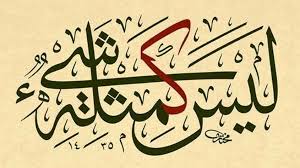 ليس كمثله شيء
١٤٣٥